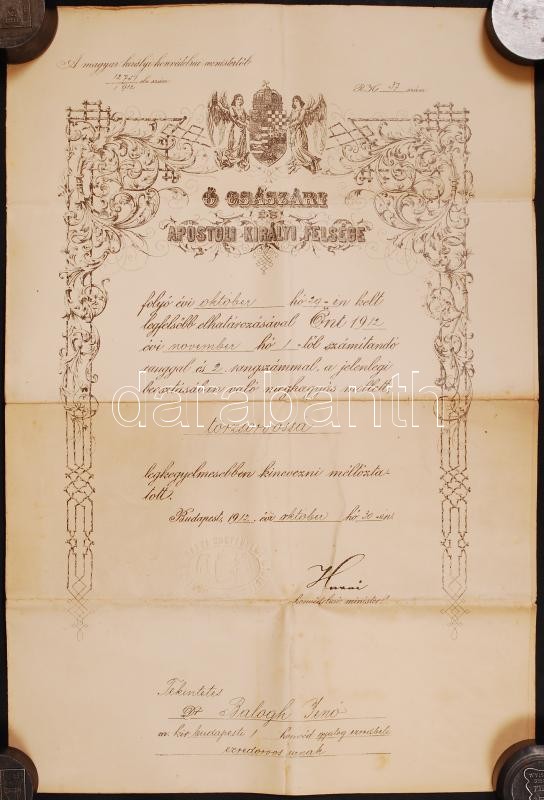 A magyar királyi honvédelmi ministertől
12751 eln. szám
1912
R.H. 57 szám
Ő CSÁSZÁRI
ÉS
APOSTOLI KIRÁLYI FELSÉGE
folyó évi október hó 29-én kelt
legfelsőbb elhatározásával Önt 1912
évi november hó 1-től számítandó
ranggal és 2 rangszámmal, a jelenlegi
beosztásában való meghagyás mellett,
törzsorvossá
legkegyelmesebben kinevezni méltózta-
tott.
Budapest, 1912. évi október hó 30-án.
Hazai
honvédelmi minister
Tekintetes
Dr Balogh Jenő
m. kir. budapesti 1 honvéd gyalog ezredbeli
ezredorvos urnak
darabanth